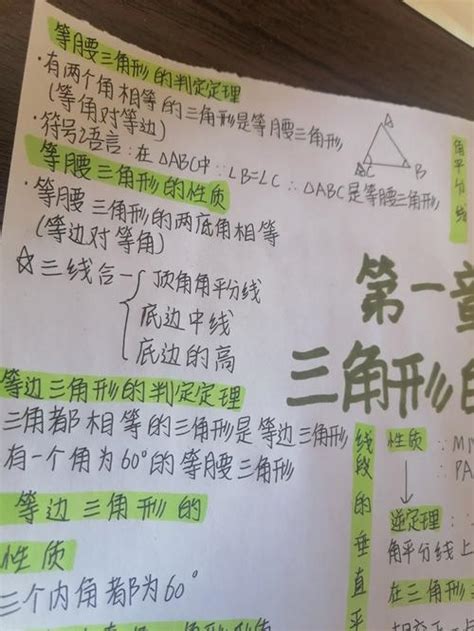 等腰三角形的判定定理
·有两个角相等的三角形是等腰三角形
(等角对等边)
·符号语言:在△ABC中∵∠B=∠C∴△ABC是等腰三角形
A
C
B
等腰三角形的性质
·等腰三角形的两底角相等
(等边对等角)
☆三线合一
顶角角平分线
底边中线
底边的高
等边三角形的判定定理
三角都相等的三角形是等边三角形
有一个角为60°的等腰三角形
等边三角形的
性质
三个内角都为60°
角平分线
第一章
三角形的
线段的垂直平
性质
∵M
∴PA
逆定理:
角平分线上
在三角形